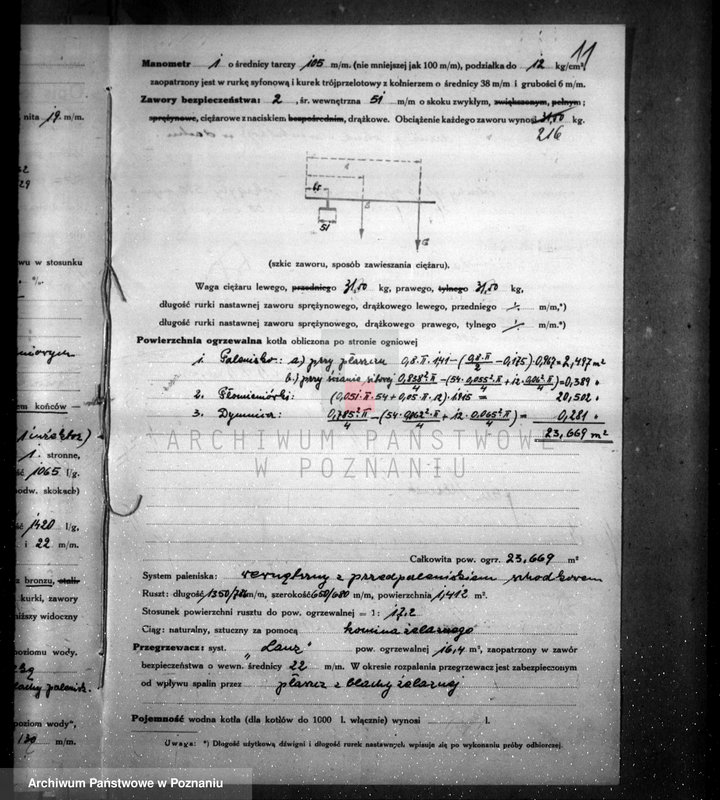 11
Manometr 1 o średnicy tarczy 105 m/m. (nie mniejszej jak 100 m/m), podziałka do 12 kg/cm²,
zaopatrzony jest w rurkę syfonową i kurek trójprzelotowy z kołnierzem o średnicy 38 m/m i grubości 6 m/m.
Zawory bezpieczeństwa: 2, śr. wewnętrzna 51 m/m o skoku zwykłym, zwiększonym, pełnym;
sprężynowe, ciężarowe z naciskiem bezpośrednim, drążkowe. Obciążenie każdego zaworu wynosi 31,50 kg.
216
65
51
(szkic zaworu, sposób zawieszania ciężaru).
Waga ciężaru lewego, przedniego 31,50 kg, prawego, tylnego 31,50 kg,
długość rurki nastawnej zaworu sprężynowego, drążkowego lewego, przedniego m/m,*)
długość rurki nastawnej zaworu sprężynowego, drążkowego prawego, tylnego m/m.*)
Powierzchnia ogrzewalna kotła obliczona po stronie ogniowej
1. Palenisko: a) przy płaszczu 0,8·π·1,41-(0,8·π/2 - 0,175)·0,967=2,497 m²
b.) przy ścianie sitowej 0,838²·π/4 -(54·0,055²·π/4 + 12·0,062²·π/4)=0,389 "
2. Płomieniówki: (0,051·π·54+0,05·π·12)·1,945 = 20,502 "
3. Dymnica: 0,785²·π/4 -(54·0,062²·π/4 + 12·0,065²·π/4) = 0,281 "
23,669 m²
ARCHIWUM PAŃSTWOWE
W POZNANIU
Całkowita pow. ogrz. 23,669 m²
System paleniska: wewnętrzny z przedpaleniskiem schodkowem
Ruszt: długość 1350/786 m/m, szerokość 650/680 m/m, powierzchnia 1,412 m².
Stosunek powierzchni rusztu do pow. ogrzewalnej = 1: 17,2
Ciąg: naturalny, sztuczny za pomocą komina żelaznego
Przegrzewacz: syst. „Lanz" pow. ogrzewalnej 16,4 m², zaopatrzony w zawór
bezpieczeństwa o wewn. średnicy 22 m/m. W okresie rozpalania przegrzewacz jest zabezpieczonym
od wpływu spalin przez płaszcz z blachy żelaznej
Pojemność wodna kotła (dla kotłów do 1000 l. włącznie) wynosi l.
Uwaga: *) Długość użytkową dźwigni i długość rurek nastawnych wpisuje się po wykonaniu próby odbiorczej.
nita 19 m/m.
29
wu w stosunku
%.
em końców —
1. stronne,
ść 1065 l/g.
podw. skokach)
ść 1420 l/g,
i 22 m/m.
z bronzu, stali
kurki, zawory
niższy widoczny
poziomu wody.
poziom wody",
130 m/m.
Archiwum Państwowe w Poznaniu